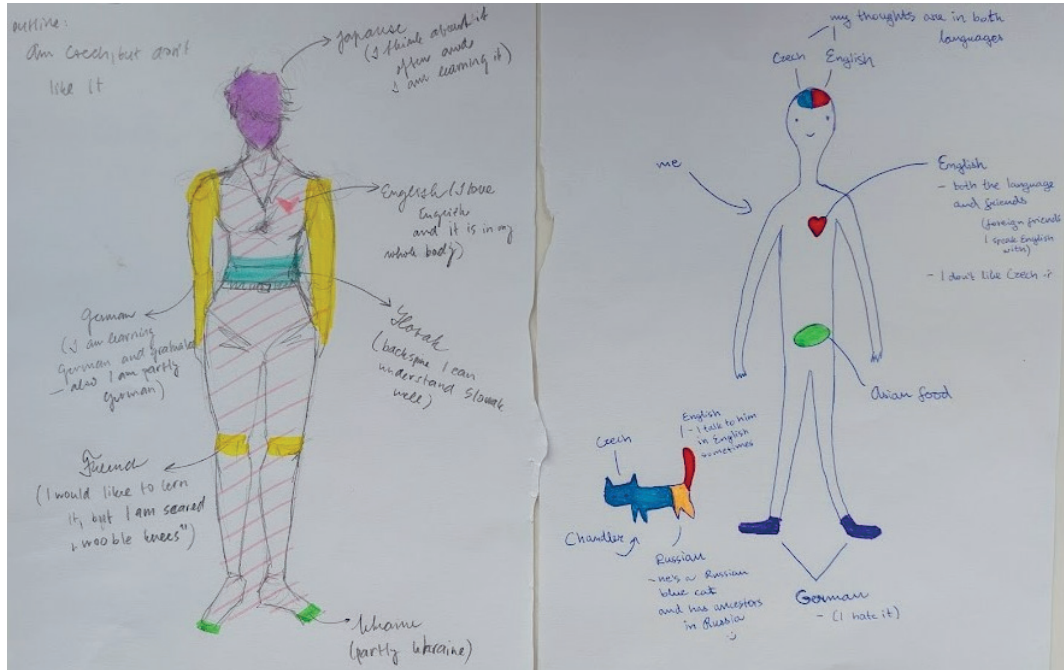 outline:
am czech, but don't
like it
Japanese
(I think about it
often and
I am learning it)
English (I love
English
and it is in my
whole body)
German
(I am learning
german and
- also I am partly
german)
Slovak
(backspine I can
understand slovak
well)
(I would like to lern
it, but I am scared
"wooble knees")
(partly Ukraine)
my thoughts are in both
languages
Czech
English
me
English
- both the language
and friends
(foreign friends
I speak English
with)
- I don't like Czech
Asian food
English
- I talk to him
in English
sometimes
Czech
Chandler
Russian
- he's a Russian
blue cat
and has ancestors
in Russia
German
- (I hate it)